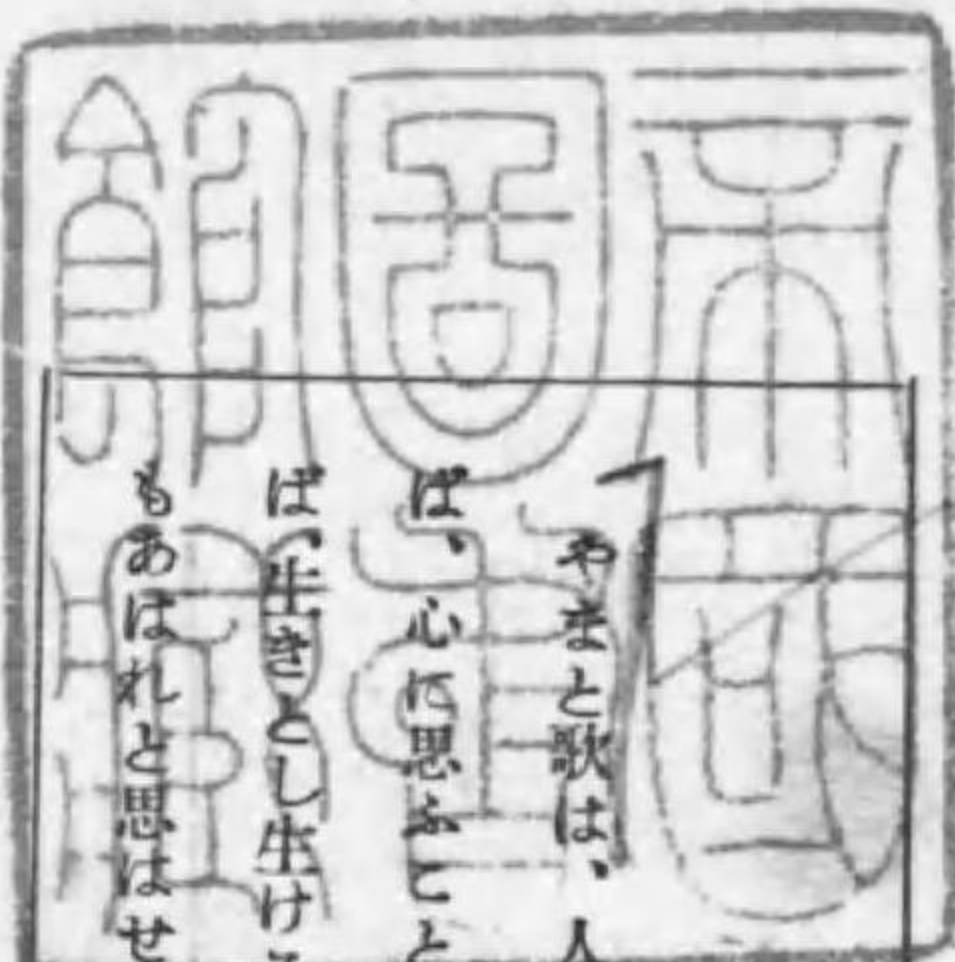 帝國
圖書
館藏
やまと歌は、人
ば、心に思ふこと
ば、生きとし生け
もあはれと思はせ